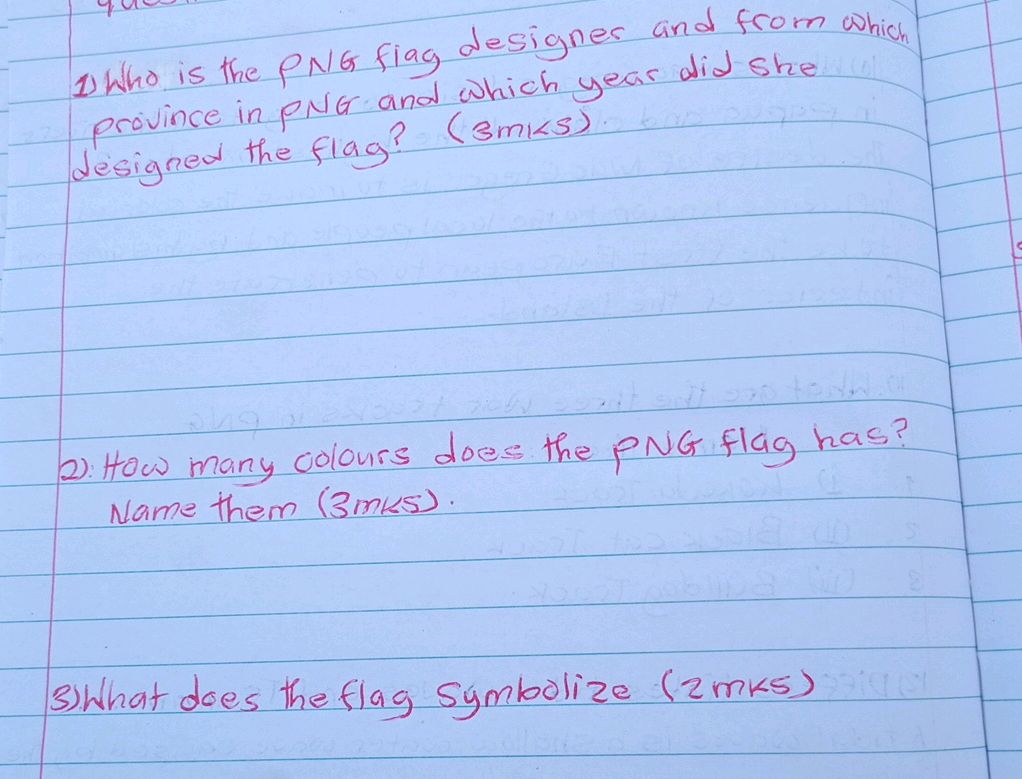 1) Who is the PNG flag designer and from which
province in PNG and which year did she
designed the flag? (3mks).
2). How many colours does the PNG flag has?
Name them (3mks).
3) What does the flag symbolize (2mks)